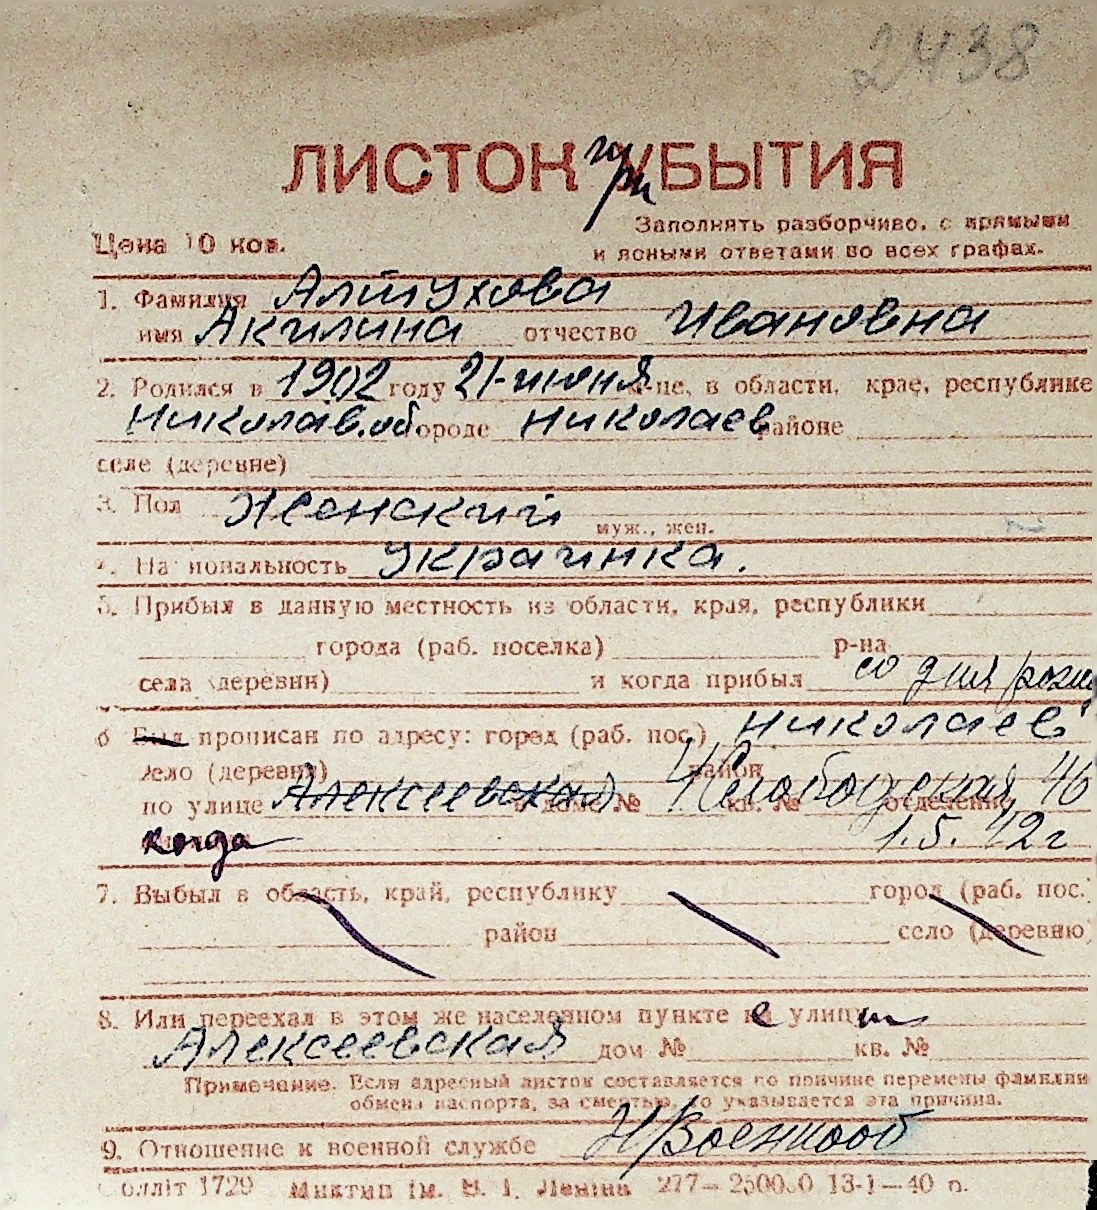 2438
ЛИСТОК при УБЫТИЯ
Заполнять разборчиво, с прямыми
Цена 10 коп.
и ясными ответами во всех графах.
1. Фамилия Алтухова
имя Акилина отчество Ивановна
2. Родился в 1902 году 21-июня м-це, в области, крае, республике
Николав. об городе Николаев районе
селе (деревне)
3. Пол Женский муж., жен.
4. Национальность украинка.
5. Прибыл в данную местность из области, края, республики
города (раб. поселка) р-на
села (деревни) и когда прибыл со дня рожд
6 Был прописан по адресу: город (раб. пос.) Николаев
село (деревня) район
по улице Алексеевская дом № кв. № Слободская 46 отделение
когда 1.5.42 г
7. Выбыл в область, край, республику город (раб. пос.
район село (деревню)
8. Или переехал в этом же населенном пункте с улицы
Алексеевская дом № кв. №
Примечание. Если адресный листок составляется по причине перемены фамилии
обмена паспорта, за смертью, то указывается эта причина.
9. Отношение к военной службе Н/Военнооб
Облліт 1729 Миктип ім. В. І. Леніна 277— 13-1—40 п.